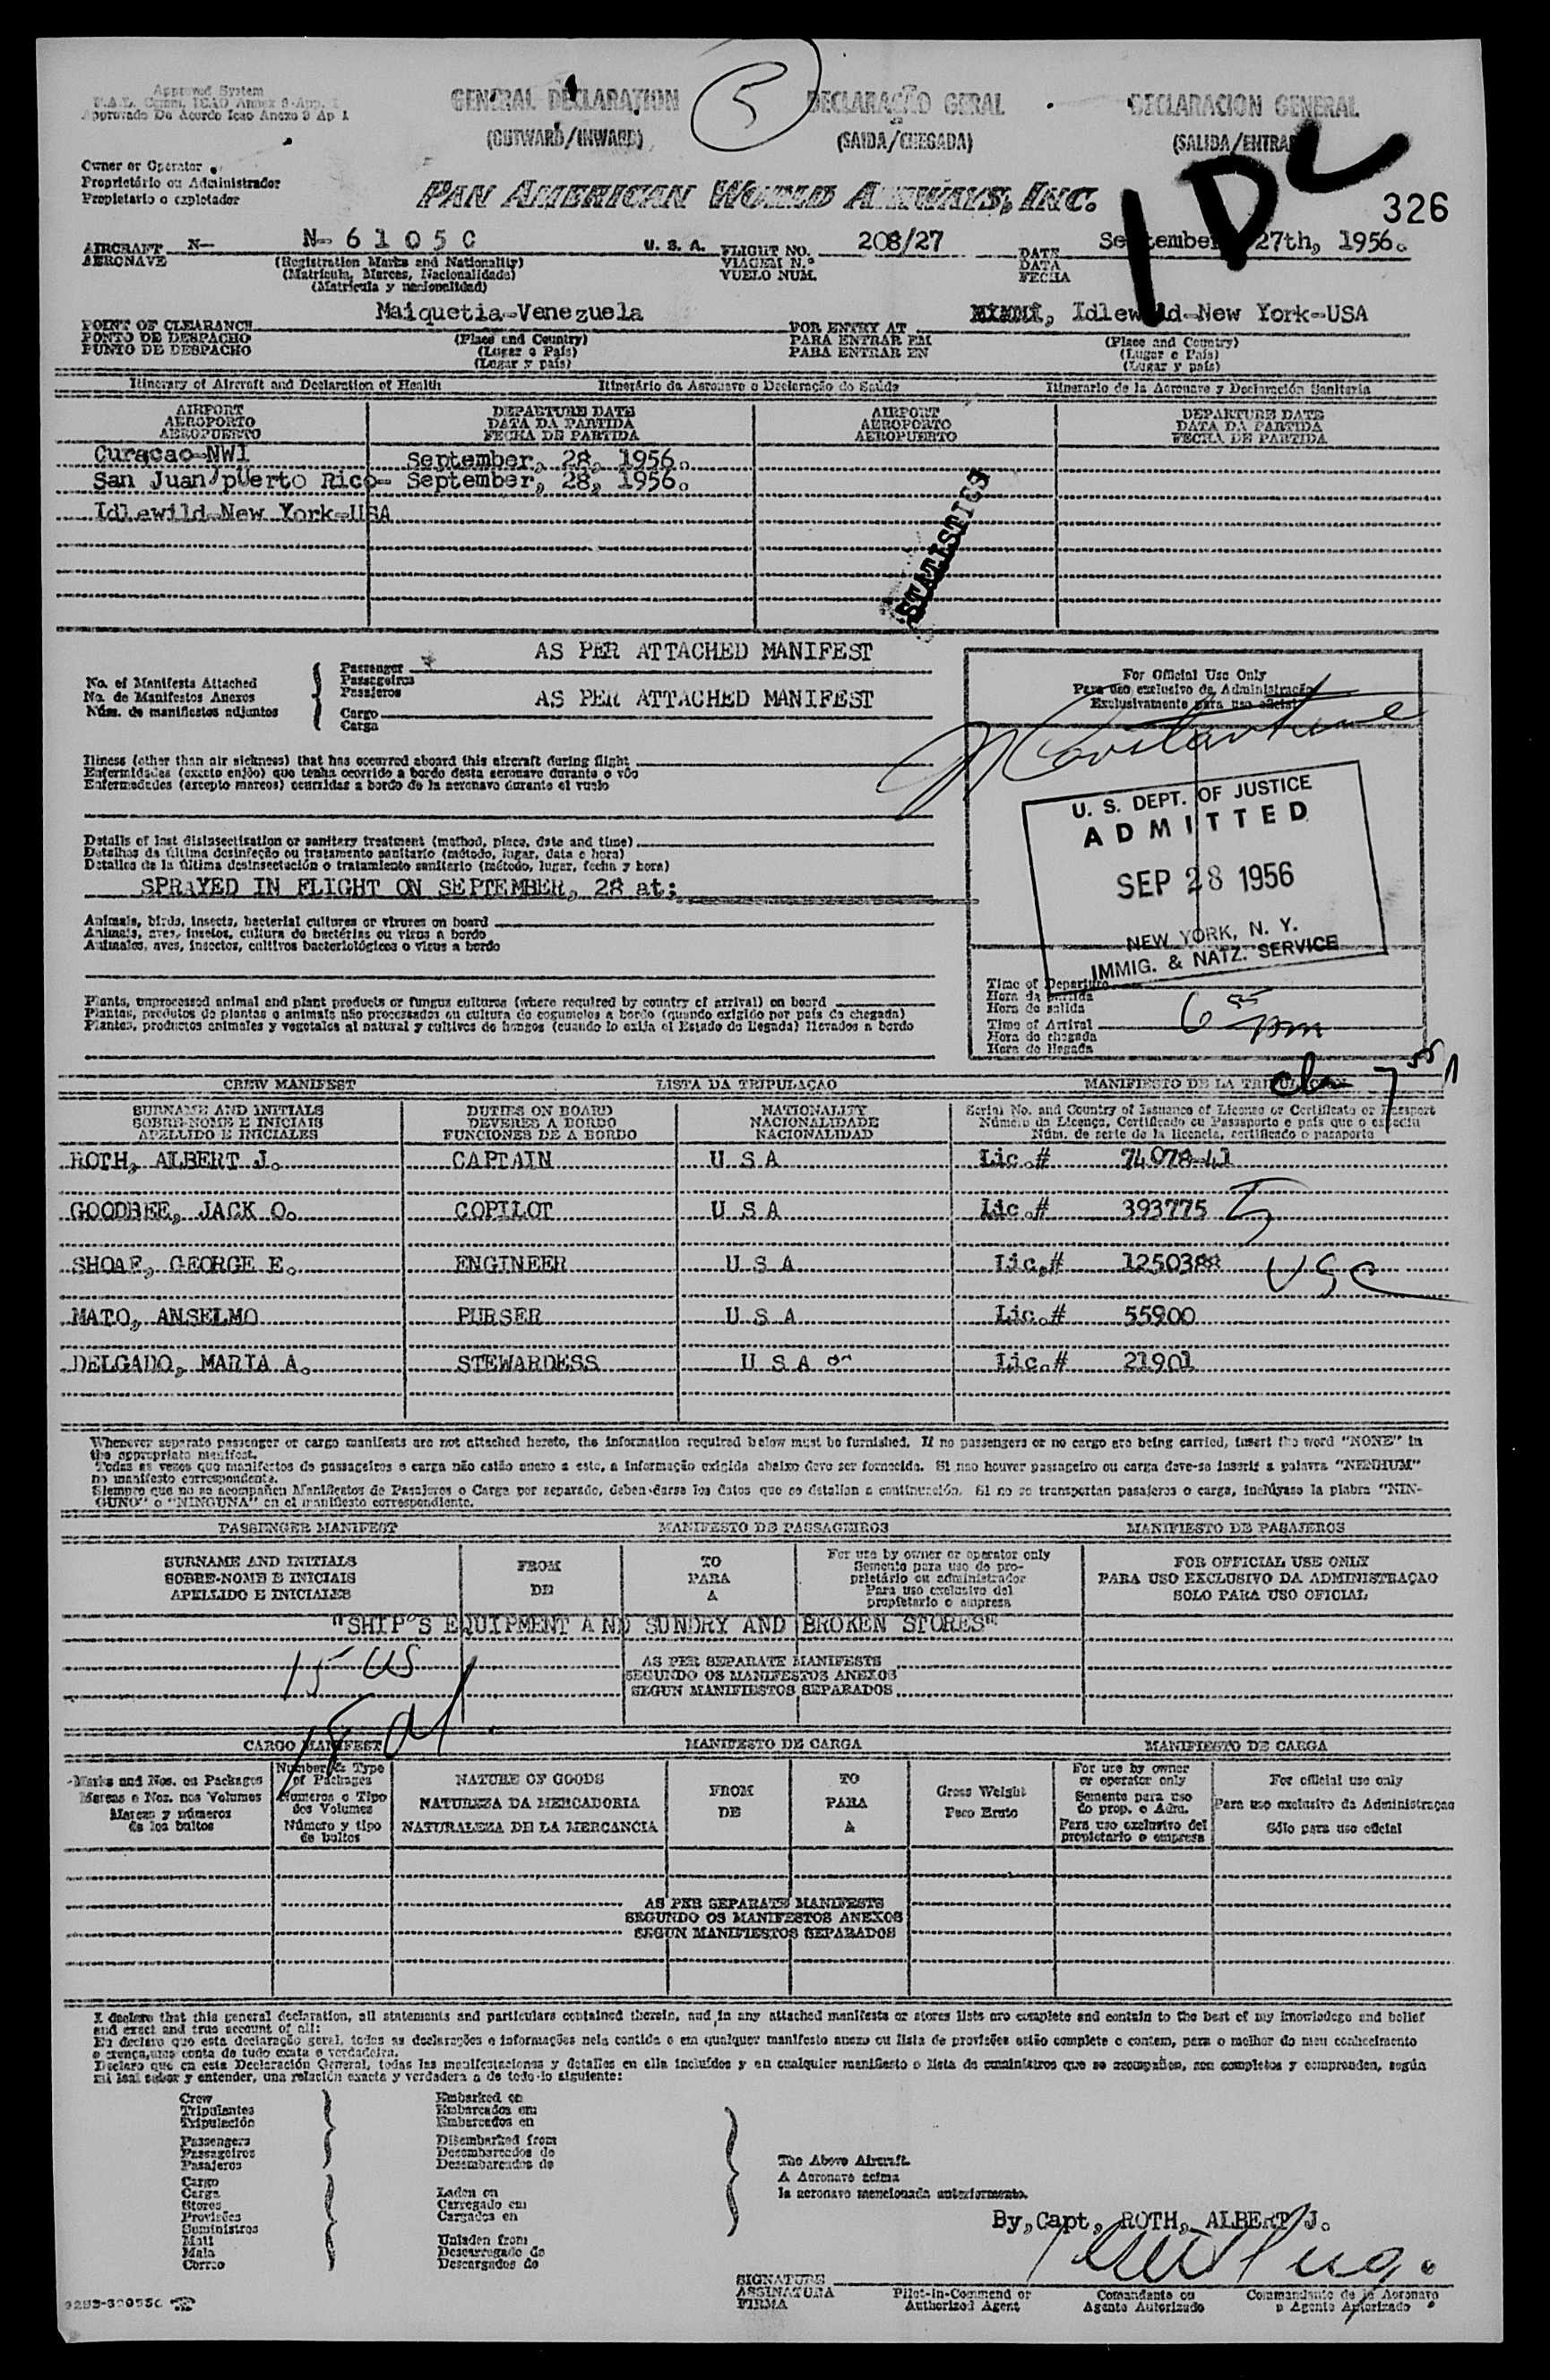 Approved System
Aprovado De Acordo Icao Anexo 9 Ap 1
GENERAL DECLARATION
(OUTWARD/INWARD)
5
DECLARAÇÃO GERAL
(SAIDA/CHEGADA)
DECLARACION GENERAL
(SALIDA/ENTRA
1 D L
326
Owner or Operator
Proprietário ou Administrador
Propietario o explotador
PAN AMERICAN WORLD AIRWAYS, INC.
AIRCRAFT N— N- 6 1 0 5 C U. S. A. FLIGHT NO. 208/27 DATE September 27th, 1956.
AERONAVE (Registration Marks and Nationality) VIAGEM N.º DATA
(Matrícula, Marcas, Nacionalidade) VUELO NUM. FECHA
(Matrícula y nacionalidad)
POINT OF CLEARANCE Maiquetia-Venezuela FOR ENTRY AT MIAMI, Idlewild-New York-USA
PONTO DE DESPACHO (Place and Country) PARA ENTRAR EM (Place and Country)
PUNTO DE DESPACHO (Lugar e País) PARA ENTRAR EN (Lugar e País)
(Lugar y país) (Lugar y país)
Itinerary of Aircraft and Declaration of Health Itinerário da Aeronave e Declaração de Saúde Itinerario de la Aeronave y Declaración Sanitaria
AIRPORT DEPARTURE DATE AIRPORT DEPARTURE DATE
AEROPORTO DATA DA PARTIDA AEROPORTO DATA DA PARTIDA
AEROPUERTO FECHA DE PARTIDA AEROPUERTO FECHA DE PARTIDA
Curaçao-NWI September, 28, 1956.
San Juan/pUerto Rico- September, 28, 1956.
Idlewild-New York-USA
STATISTICS
No. of Manifests Attached
No. de Manifestos Anexos
Núm. de manifiestos adjuntos
Passenger AS PER ATTACHED MANIFEST
Passageiros
Pasajeros
Cargo AS PER ATTACHED MANIFEST
Carga
For Official Use Only
Para uso exclusivo da Administração
Exclusivamente para uso oficial
Illness (other than air sickness) that has occurred aboard this aircraft during flight
Enfermidades (exceto enjôo) que tenha ocorrido a bordo desta aeronave durante o vôo
Enfermedades (excepto mareos) ocurridas a bordo de la aeronave durante el vuelo
U. S. DEPT. OF JUSTICE
ADMITTED
SEP 28 1956
NEW YORK, N. Y.
IMMIG. & NATZ. SERVICE
Details of last disinsectization or sanitary treatment (method, place, date and time)
Detalhes da última desinfeção ou tratamento sanitario (método, lugar, data e hora)
Detalles de la última desinsectación o tratamiento sanitario (método, lugar, fecha y hora)
SPRAYED IN FLIGHT ON SEPTEMBER, 28 at:
Animals, birds, insects, bacterial cultures or viruses on board
Animais, aves, insetos, cultura de bactérias ou virus a bordo
Animales, aves, insectos, cultivos bacteriológicos o virus a bordo
Plants, unprocessed animal and plant products or fungus cultures (where required by country of arrival) on board
Plantas, produtos de plantas e animais não processados ou cultura de cogumelos a bordo (quando exigido por país de chegada)
Plantas, productos animales y vegetales al natural y cultivos de hongos (cuando lo exija el Estado de llegada) llevados a bordo
Time of Departure
Hora da partida
Hora de salida
Time of Arrival 6 55 pm
Hora de chegada
Hora de llegada
7 55
CREW MANIFEST LISTA DA TRIPULAÇAO MANIFIESTO DE LA TRIPULACION
SURNAME AND INITIALS DUTIES ON BOARD NATIONALITY Serial No. and Country of Issuance of License or Certificate or Passport
SOBRE-NOME E INICIAIS DEVERES A BORDO NACIONALIDADE Número da Licença, Certificado ou Passaporte e país que o expediu
APELLIDO E INICIALES FUNCIONES DE A BORDO NACIONALIDAD Núm. de serie de la licencia, certificado o pasaporte
ROTH, ALBERT J. CAPTAIN U S A Lic.# 74078-41
GOODBEE, JACK O. COPILOT U S A Lic.# 393775 5
SHOAF, GEORGE E. ENGINEER U S A Lic.# 1250388 USC
MATO, ANSELMO PURSER U S A Lic.# 55900
DELGADO, MARIA A. STEWARDESS U S A Lic.# 21901
Whenever separate passenger or cargo manifests are not attached hereto, the information required below must be furnished. If no passengers or no cargo are being carried, insert the word "NONE" in
the appropriate manifest.
Todas as vezes que manifestos de passageiros e carga não estão anexo a este, a informação exigida abaixo deve ser fornecida. Si nao houver passageiro ou carga deve-se inserir a palavra "NENHUM"
no manifesto correspondente.
Siempre que no se acompañen Manifiestos de Pasajeros o Carga por separado, deben darse los datos que se detallan a continuación. Si no se transportan pasajeros o carga, inclúyase la plabra "NIN-
GUNO" o "NINGUNA" en el manifiesto correspondiente.
PASSENGER MANIFEST MANIFESTO DE PASSAGEIROS MANIFIESTO DE PASAJEROS
SURNAME AND INITIALS FROM TO For use by owner or operator only FOR OFFICIAL USE ONLY
SOBRE-NOME E INICIAIS DE PARA Somente para uso de pro- PARA USO EXCLUSIVO DA ADMINISTRAÇAO
APELLIDO E INICIALES A prietário ou administrador SOLO PARA USO OFICIAL
Para uso exclusivo del
propietario o empresa
"SHIP'S EQUIPMENT AND SUNDRY AND BROKEN STORES"
15 US
AS PER SEPARATE MANIFESTS
SEGUNDO OS MANIFESTOS ANEXOS
SEGUN MANIFIESTOS SEPARADOS
18 al
CARGO MANIFEST MANIFESTO DE CARGA MANIFIESTO DE CARGA
Marks and Nos. on Packages Number & Type of Packages NATURE OF GOODS FROM TO Gross Weight For use by owner or operator only For official use only
Marcas e Nos. nos Volumes Numeros e Tipo dos Volumes NATUREZA DA MERCADORIA DE PARA Peso Bruto Somente para uso do prop. e Adm. Para uso exclusivo da Administraçao
Marcas y números de los bultos Número y tipo de bultos NATURALEZA DE LA MERCANCIA A Para uso exclusivo del propietario o empresa Sólo para uso oficial
AS PER SEPARATE MANIFESTS
SEGUNDO OS MANIFESTOS ANEXOS
SEGUN MANIFIESTOS SEPARADOS
I declare that this general declaration, all statements and particulars contained therein, and in any attached manifests or stores lists are complete and contain to the best of my knowledge and belief
and exact and true account of all:
Eu declaro que esta declaração geral, todas as declarações e informações nela contida e em qualquer manifesto anexo ou lista de provisões estão complete e contem, para o melhor do meu conhecimento
e crença, uma conta de tudo exata e verdadeira.
Declaro que en esta Declaración General, todas las manifestaciones y detalles en ella incluídos y en cualquier manifiesto o lista de suministros que se acompañen, son completos y comprenden, según
mi leal saber y entender, una relación exacta y verdadera a de todo lo siguiente:
Crew Embarked on
Tripulantes Embarcados em
Tripulación Embarcados en
Passengers Disembarked from
Passageiros Desembarcados de
Pasajeros Desembarcados de
Cargo
Carga Laden on
Stores Carregado em
Provisões Cargados en
Suministros
Mail Unladen from
Mala Descarregado de
Correo Descargados de
The Above Aircraft.
A Aeronave acima
la aeronave mencionada anteriormente.
By, Capt, ROTH, ALBERT J.
SIGNATURE
ASSINATURA Pilot-in-Command or Comandante ou Commandante de la Aeronave
FIRMA Authorized Agent Agente Autorizado o Agente Autorizado